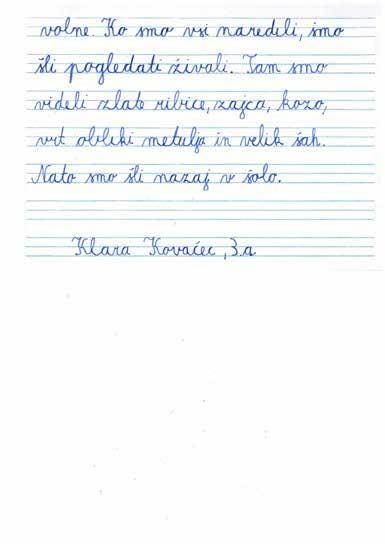 volne. Ko smo vsi naredili, smo
šli pogledati živali. Tam smo
videli zlate ribice, zajca, kozo,
vrt obliki metulja in velik šah.
Nato smo šli nazaj v šolo.
Klara Kovačec, 3.a